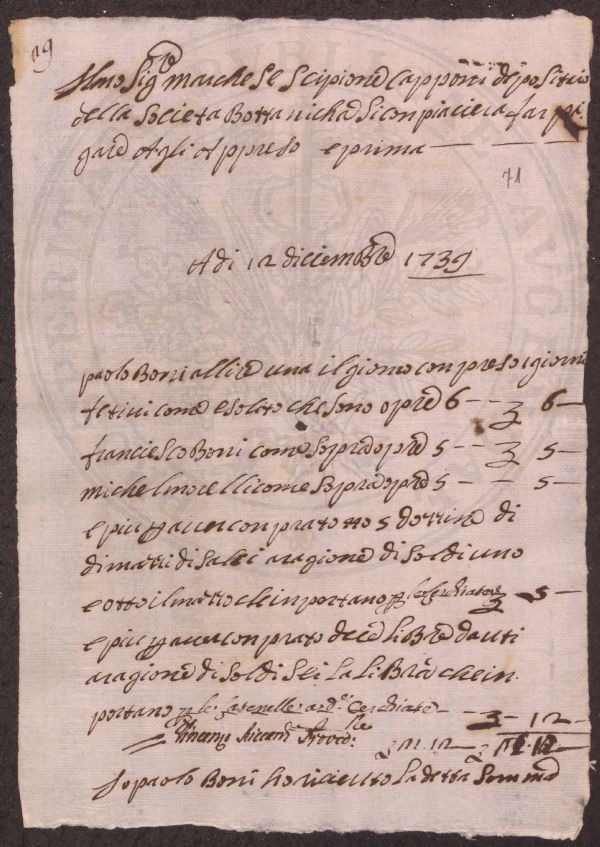 19
Illmo Sig.re Marchese Scipione Capponi depositario
della Societa Bottanicha si conpiacera far pa
gare agli appreso e prima — — —
71
Adi 12 dicembre 1739
paolo Boni allire una il giorno conpreso i giorni
fetivi come e solito che sono opre 6 — — 6 —
franciesco Boni come sopra opre 5 — 5 —
michel morelli come sopra opre 5 — — 5 —
e piu p aver conprato no 5 dottine di
di mazzi di salci aragione di soldi uno
e otto il mazzo che inportano p le 3 5 —
e piu p aver conprato dece libre dauti
aragione di soldi sei la libra che in
portano p le — 3 — 12 —
Proved.re
11 . 12 —
Io paolo Boni ho riceuto la detta somma